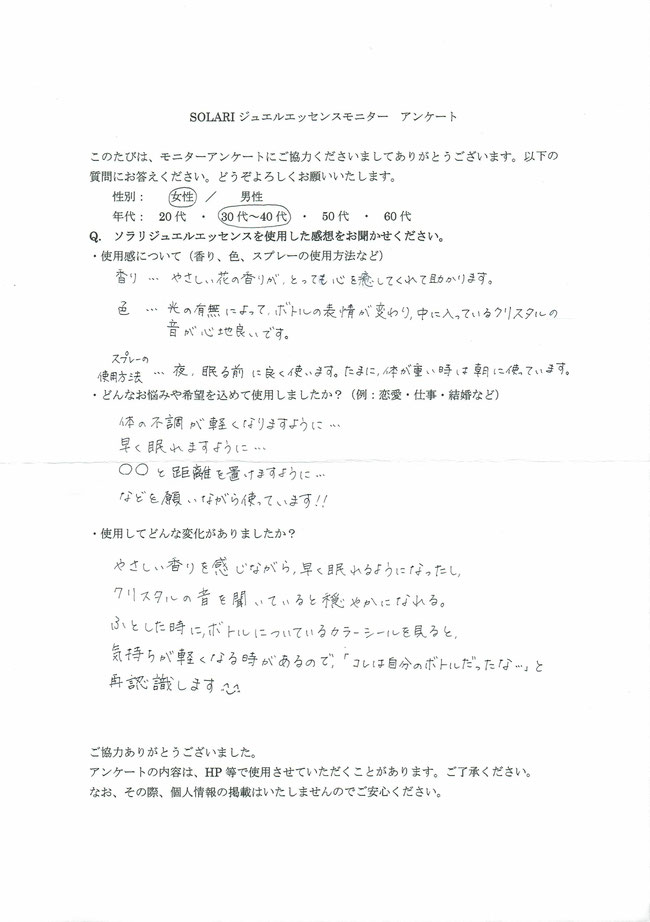 SOLARI ジュエルエッセンスモニター　アンケート
このたびは、モニターアンケートにご協力くださいましてありがとうございます。以下の
質問にお答えください。どうぞよろしくお願いいたします。
性別：　女性　／　男性
年代：　20代　・　30代～40代　・　50代　・　60代
Q.　ソラリジュエルエッセンスを使用した感想をお聞かせください。
・使用感について（香り、色、スプレーの使用方法など）
香り … やさしい花の香りが、とっても心を癒してくれて助かります。
色 … 光の有無によって、ボトルの表情が変わり、中に入っているクリスタルの
音が心地良いです。
スプレーの
使用方法 … 夜、眠る前に良く使います。たまに、体が重い時は朝に使っています。
・どんなお悩みや希望を込めて使用しましたか？（例：恋愛・仕事・結婚など）
体の不調が軽くなりますように…
早く眠れますように…
○○と距離を置けますように…
などを願いながら使っています!!
・使用してどんな変化がありましたか？
やさしい香りを感じながら、早く眠れるようになったし、
クリスタルの音を聞いていると穏やかになれる。
ふとした時に、ボトルについているカラーシールを見ると、
気持ちが軽くなる時があるので、「コレは自分のボトルだったな…」と
再認識します
ご協力ありがとうございました。
アンケートの内容は、HP等で使用させていただくことがあります。ご了承ください。
なお、その際、個人情報の掲載はいたしませんのでご安心ください。